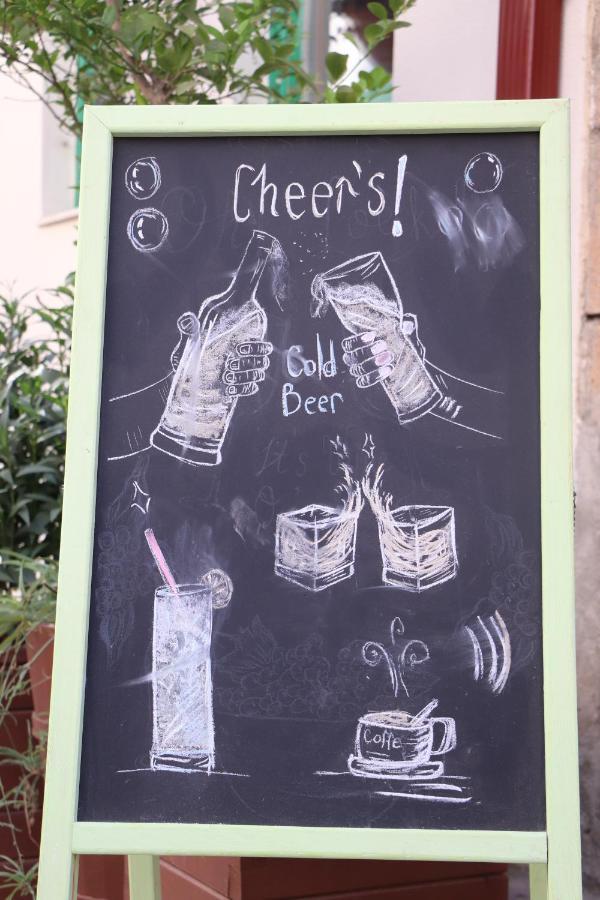 Cheer's!
Cold
Beer
Coffe